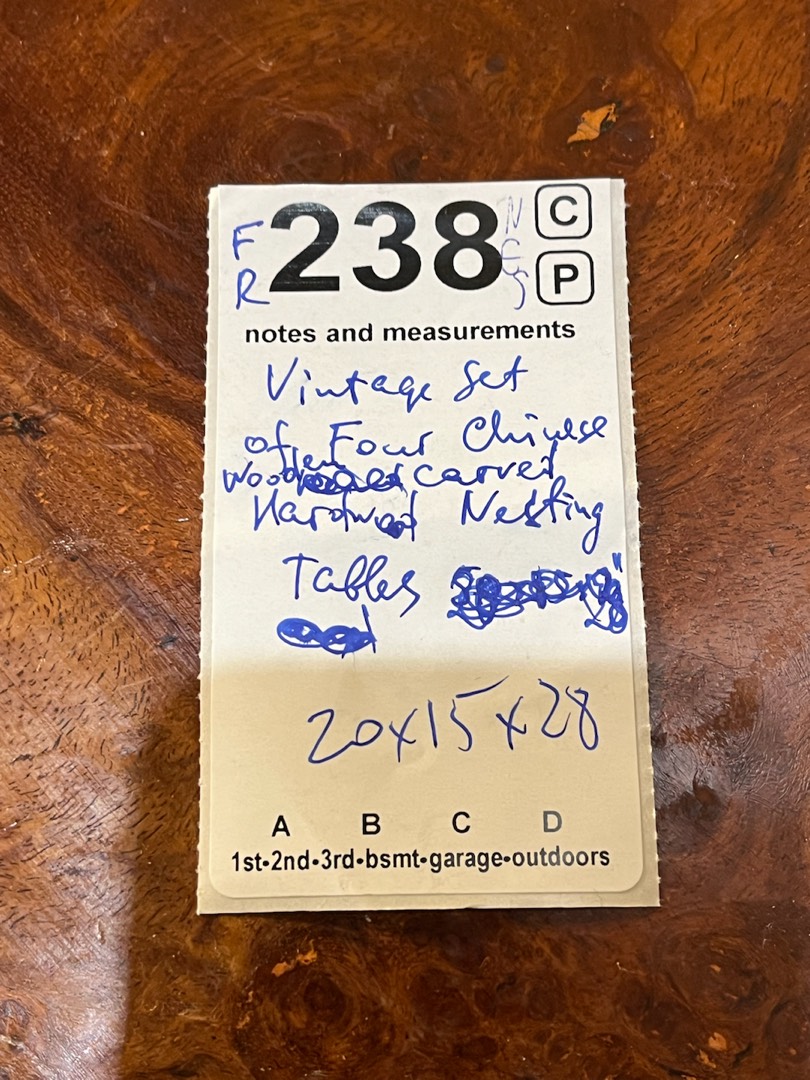 FR 238 NES C
P
notes and measurements
Vintage Set
of Four Chinese
Wooden carved
Hardwood Nesting
Tables
20x15x28
A B C D
1st-2nd-3rd-bsmt-garage-outdoors